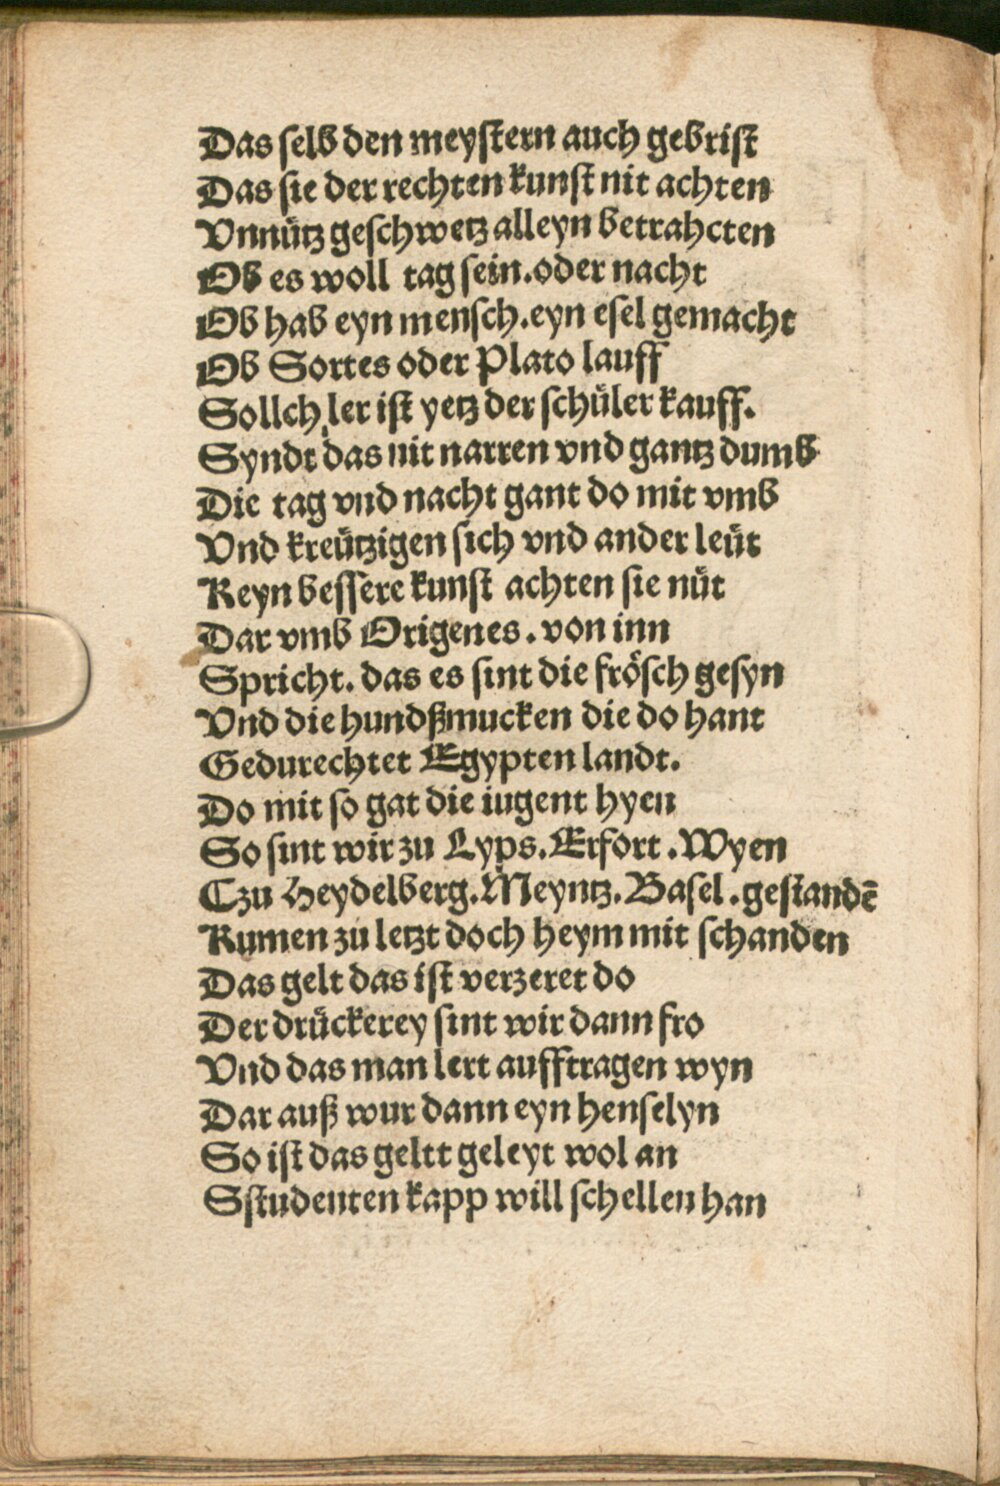 Das selb den meystern auch gebrist
Das sie der rechten kunst nit achten
Vnnütz geschwetz alleyn betrahcten
Ob es woll tag sein.oder nacht
Ob hab eyn mensch.eyn esel gemacht
Ob Sortes oder Plato lauff
Sollch ler ist yetz der schüler kauff.
Syndt das nit narren vnd gantz dumb
Die tag vnd nacht gant do mit vmb
Vnd kreützigen sich vnd ander leüt
Keyn bessere kunst achten sie nüt
Dar vmb Origenes. von inn
Spricht. das es sint die frösch gesyn
Vnd die hundßmucken die do hant
Gedurechtet Egypten landt.
Do mit so gat die iugent hyen
So sint wir zu Lyps.Erfort.Wyen
Czu Heydelberg.Meyntz.Basel.gestandē
Kumen zu letzt doch heym mit schanden
Das gelt das ist verzeret do
Der drückerey sint wir dann fro
Vnd das man lert aufftragen wyn
Dar auß wur dann eyn henselyn
So ist das geltt geleyt wol an
Sstudenten kapp will schellen han